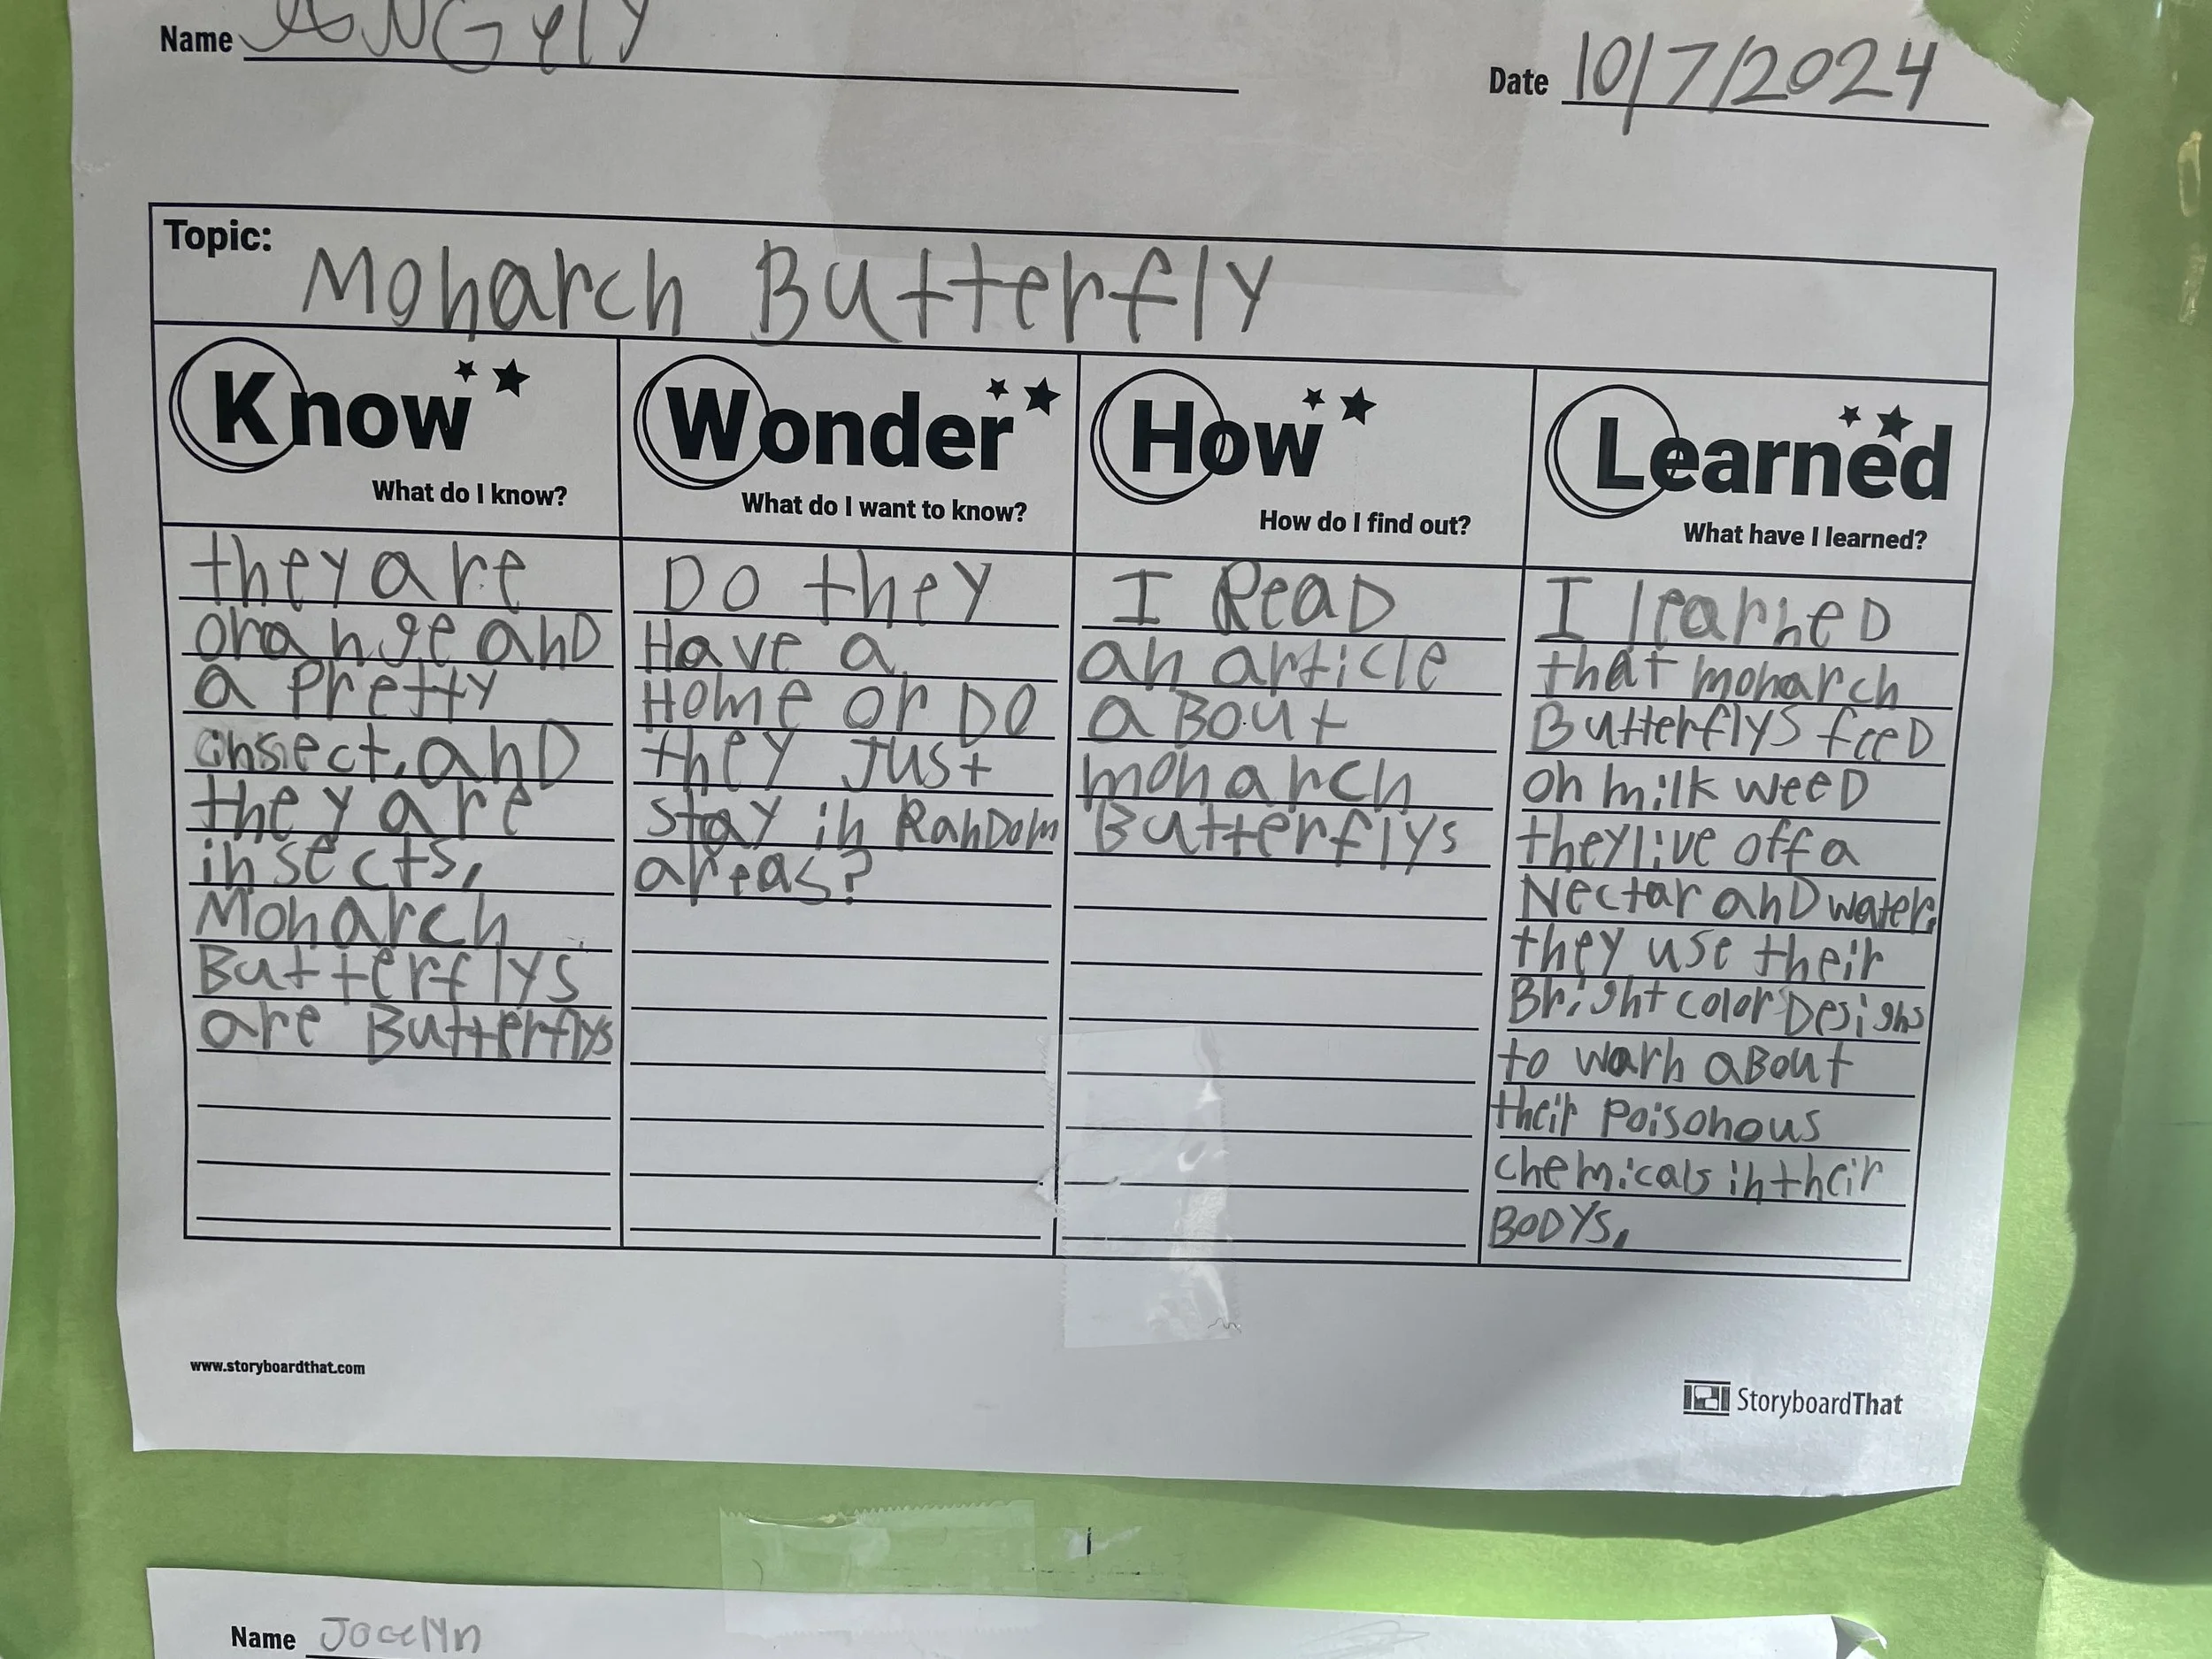 Name ANGely
Date 10/7/2024
Topic: Monarch Butterfly
Know
What do I know?
they are
orange anD
a pretty
insect. anD
they are
insects.
Monarch
Butterflys
are Butterflys
Wonder
What do I want to know?
Do they
Have a
Home or Do
they Just
stay in RanDom
areas?
How
How do I find out?
I ReaD
an article
aBout
monarch
Butterflys
Learned
What have I learned?
I learneD
that monarch
Butterflys feeD
on milk weeD
they live off a
Nectar anD water.
they use their
Bright color Designs
to warn aBout
their poisonous
chemicals in their
BODYS.
www.storyboardthat.com
StoryboardThat
Name Jocelyn